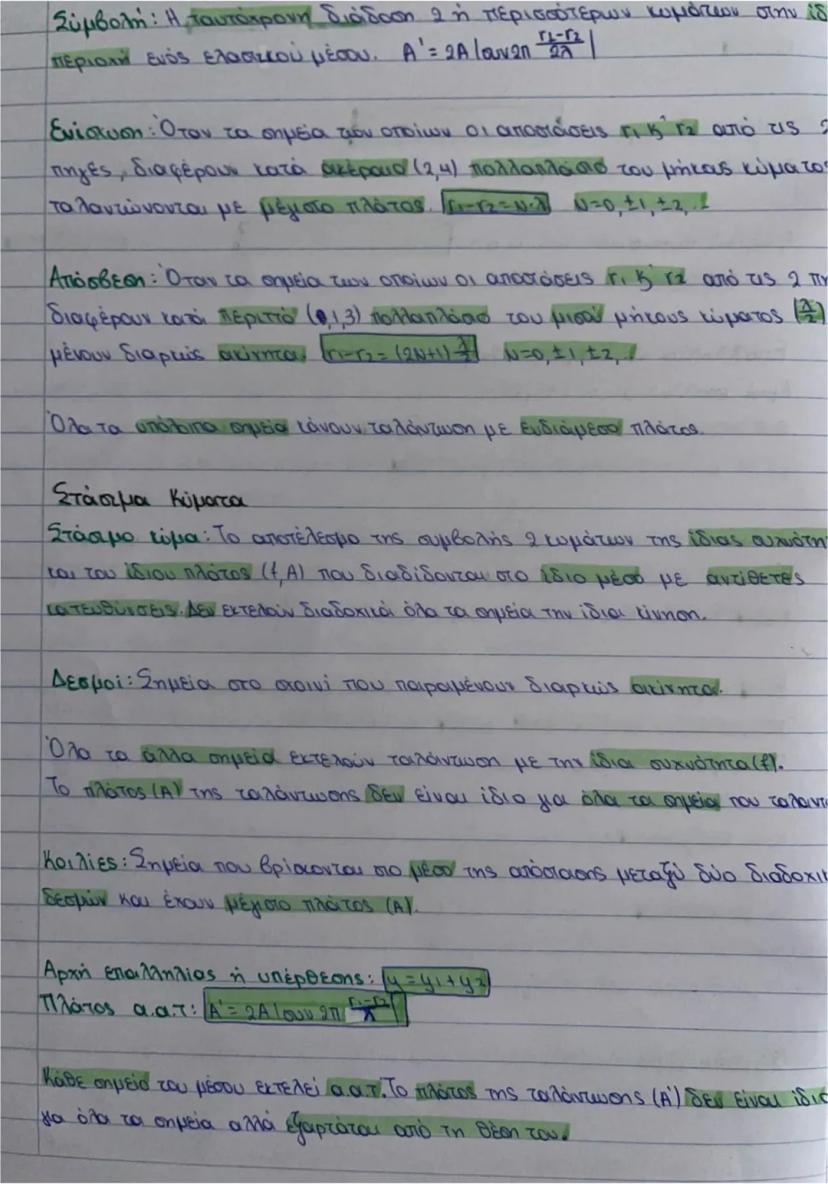 Σύμβολή: Η ταυτόχρονη διάδοση 2 ή περισσότερων κυμάτων στην ίδ
περιοχή ενός ελαστικού μέσου. A' = 2A|συν2π (r₁-r₂)/2λ|
Ενίσχυση: Όταν τα σημεία των οποίων οι αποστάσεις r₁ ϗ r₂ από τις 2
πηγές, διαφέρουν κατά ακέραιο (2,4) πολλαπλάσιο του μήκος κύματος
ταλαντώνονται με μέγιστο πλάτος. r₁-r₂ = N·λ N=0, ±1, ±2, ..
Απόσβεση: Όταν τα σημεία των οποίων οι αποστάσεις r₁ ϗ r₂ από τις 2 πη
διαφέρουν κατά περιττό (1,3) πολλαπλάσιο του μισού μήκους κύματος (λ/2)
μένουν διαρκώς ακίνητα. r₁-r₂ = (2N+1) λ/2 N=0, ±1, ±2, ..
Όλα τα υπόλοιπα σημεία κάνουν ταλάντωση με ενδιάμεσο πλάτος.
Στάσιμα Κύματα
Στάσιμο κύμα: Το αποτέλεσμα της συμβολής 2 κυμάτων της ίδιας συχνότη
και του ίδιου πλάτος (f, A) που διαδίδονται στο ίδιο μέσο με αντίθετες
κατευθύνσεις. Δεν εκτελούν διαδοχικά όλα τα σημεία την ίδια κίνηση.
Δεσμοί: Σημεία στο σχοινί που παραμένουν διαρκώς ακίνητα.
Όλα τα άλλα σημεία εκτελούν ταλάντωση με την ίδια συχνότητα (f).
Το πλάτος (A) της ταλάντωσης δεν είναι ίδιο για όλα τα σημεία που ταλαντ
Κοιλίες: Σημεία που βρίσκονται στο μέσο της απόστασης μεταξύ δύο διαδοχι
δεσμών και έχουν μέγιστο πλάτος (A).
Αρχή επαλληλίας ή υπέρθεσης: y = y₁ + y₂
Πλάτος α.α.τ: A' = 2A|συν 2π (r₁-r₂)/λ|
Κάθε σημείο του μέσου εκτελεί α.α.τ. Το πλάτος της ταλάντωσης (A') δεν είναι ίδιο
για όλα τα σημεία αλλά εξαρτάται από τη θέση του.